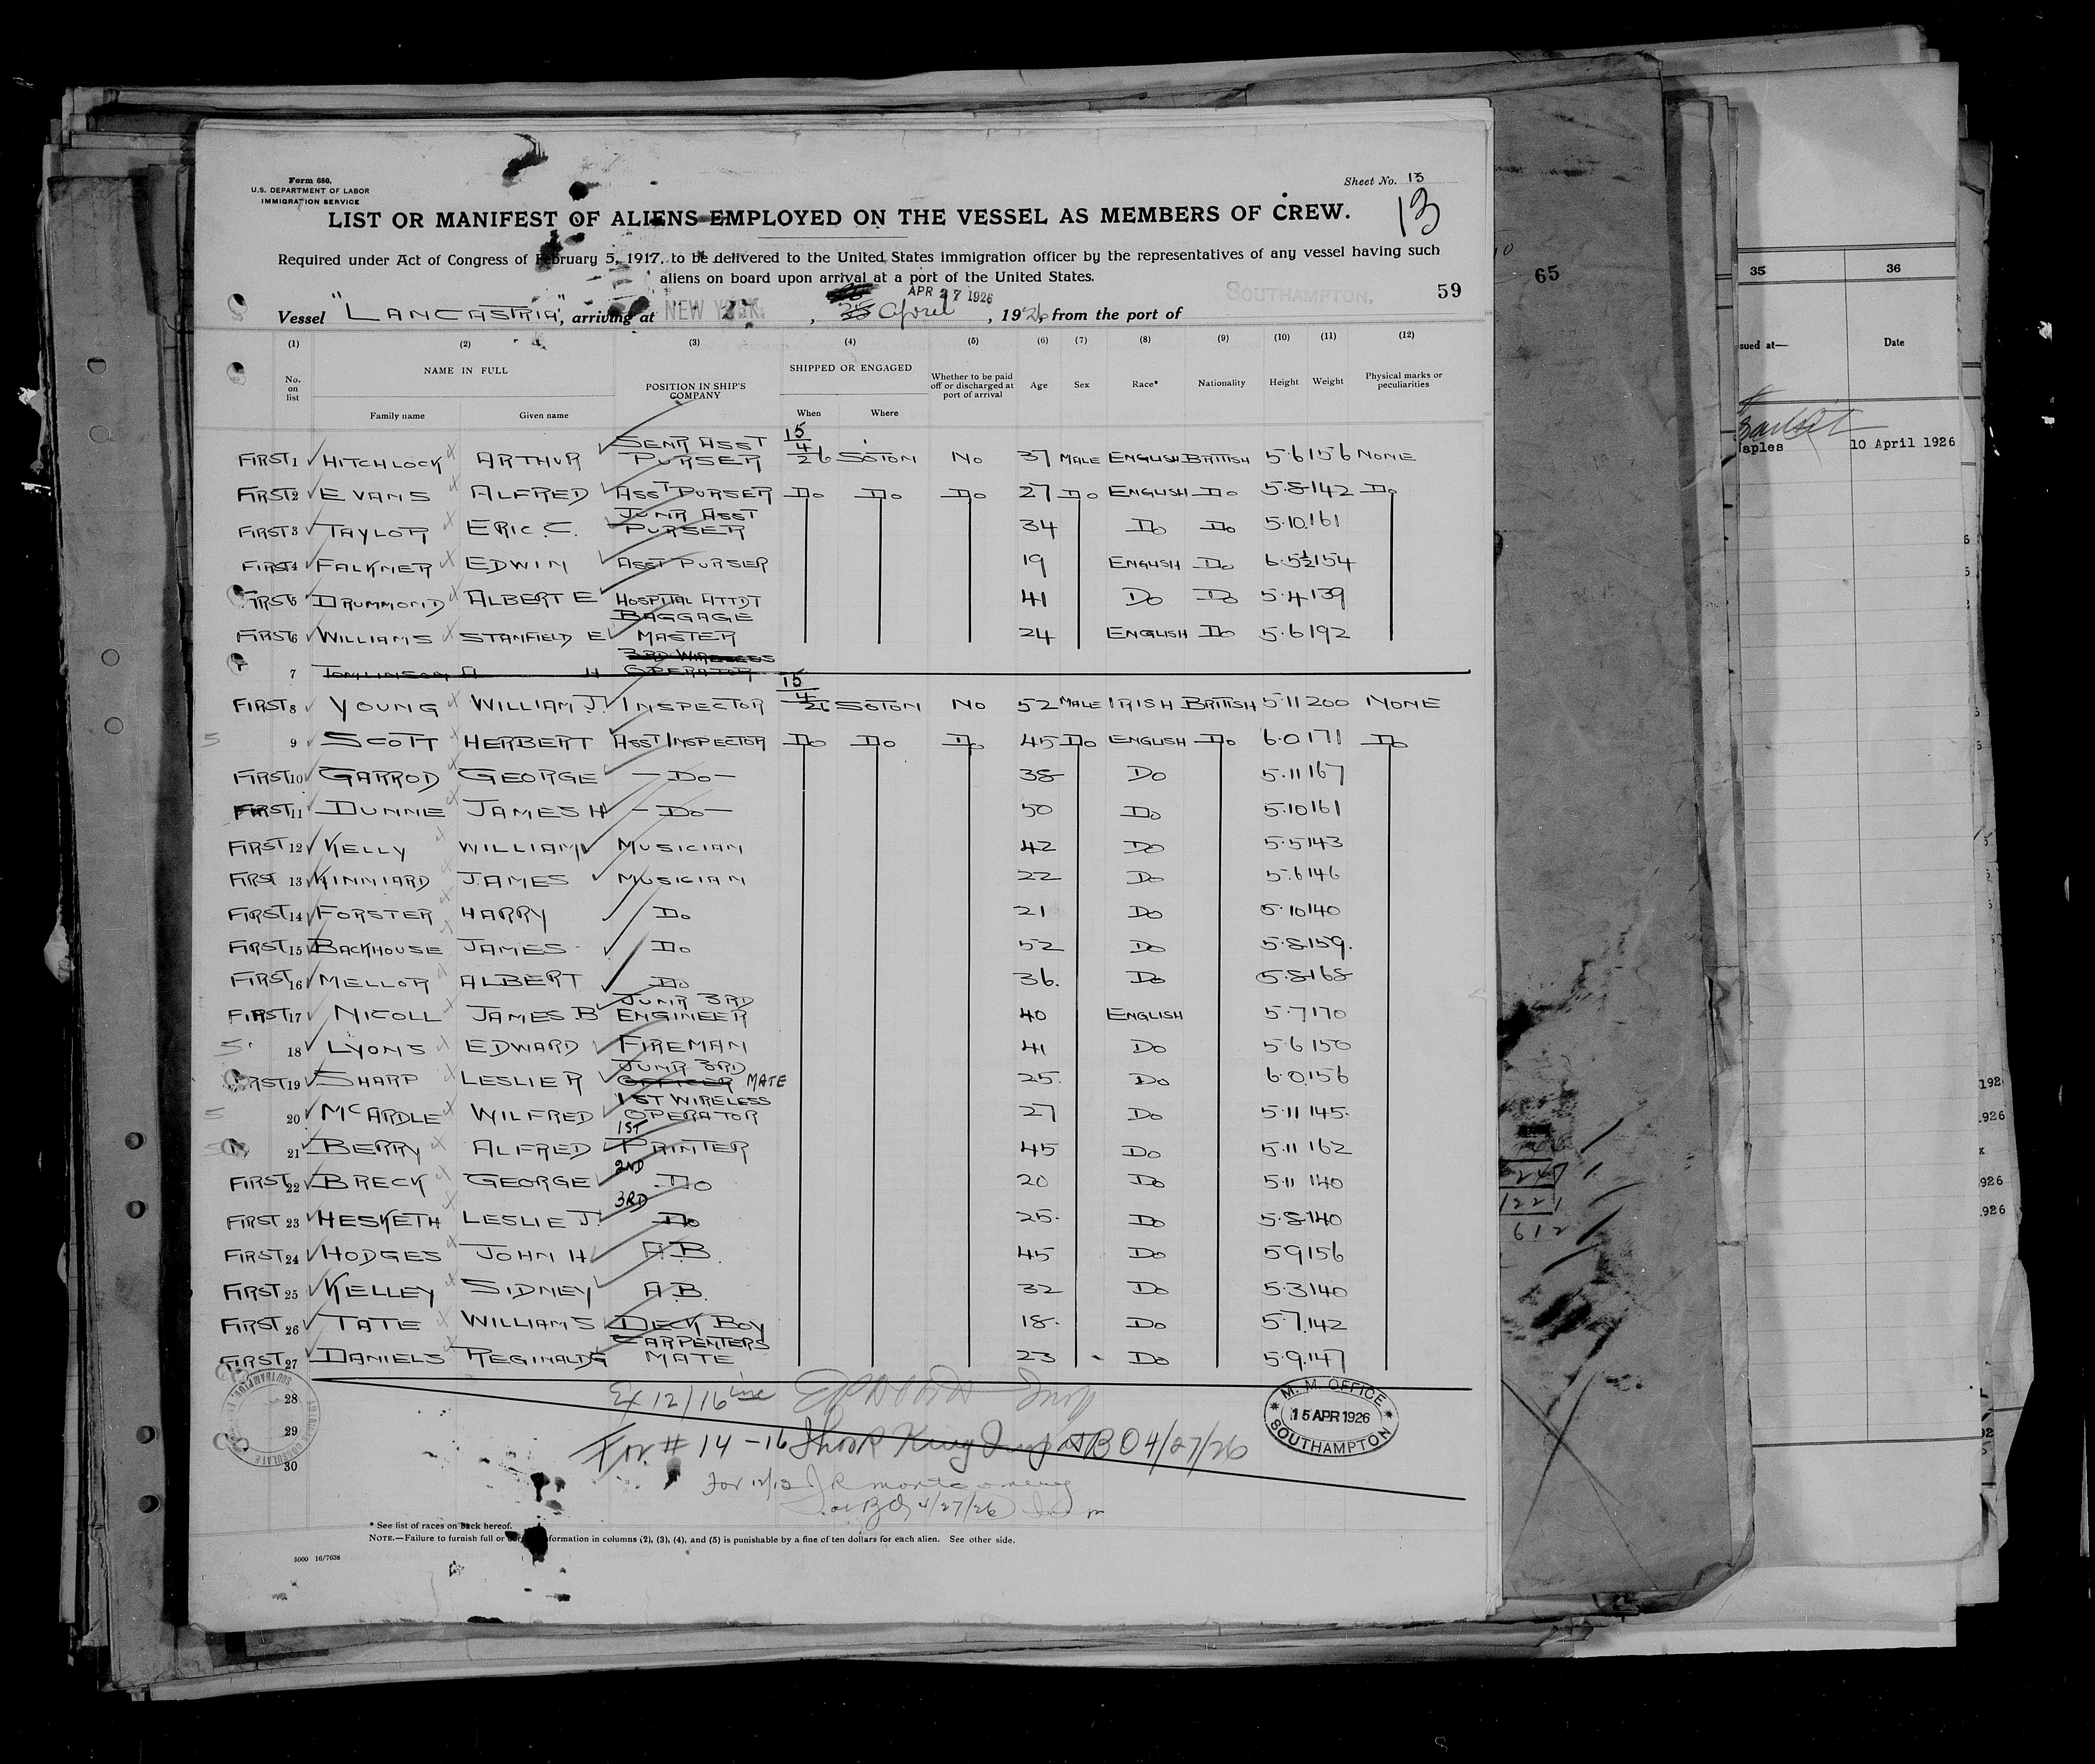 Form 680.
U.S. DEPARTMENT OF LABOR
IMMIGRATION SERVICE
Sheet No. 13
13
LIST OR MANIFEST OF ALIENS EMPLOYED ON THE VESSEL AS MEMBERS OF CREW.
Required under Act of Congress of February 5, 1917, to be delivered to the United States immigration officer by the representatives of any vessel having such
aliens on board upon arrival at a port of the United States.
59
Vessel "LANCASTRIA", arriving at NEW YORK, 25 April APR 27 1926, 1926, from the port of SOUTHAMPTON.
(1) (2) (3) (4) (5) (6) (7) (8) (9) (10) (11) (12)
No. on list NAME IN FULL Family name Given name POSITION IN SHIP'S COMPANY SHIPPED OR ENGAGED When Where Whether to be paid off or discharged at port of arrival Age Sex Race* Nationality Height Weight Physical marks or peculiarities
FIRST 1 HITCHLOCK ARTHUR SENR ASST PURSER 15/4/26 SOTON NO 37 MALE ENGLISH BRITISH 5.6 156 NONE
FIRST 2 EVANS ALFRED ASST PURSER DO DO DO 27 DO ENGLISH DO 5.8 142 DO
FIRST 3 TAYLOR ERIC.C. JUNR ASST PURSER 34 DO DO 5.10 161
FIRST 4 FALKNER EDWIN ASST PURSER 19 ENGLISH DO 6.5½ 154
FIRST 5 DRUMMOND ALBERT E HOSPITAL ATTDT 41 DO DO 5.4 139
FIRST 6 WILLIAMS STANFIELD E BAGGAGE MASTER 24 ENGLISH DO 5.6 192
7 TOMLINSON A H 3RD WIRELESS OPERATOR
FIRST 8 YOUNG WILLIAM J. INSPECTOR 15/4/26 SOTON NO 52 MALE IRISH BRITISH 5.11 200 NONE
5 9 SCOTT HERBERT ASST INSPECTOR DO DO DO 45 DO ENGLISH DO 6.0 171 DO
FIRST 10 GARROD GEORGE — DO — 38 DO 5.11 167
FIRST 11 DUNNE JAMES H — DO — 50 DO 5.10 161
FIRST 12 KELLY WILLIAM MUSICIAN 42 DO 5.5 143
FIRST 13 KINNIARD JAMES MUSICIAN 22 DO 5.6 146
FIRST 14 FORSTER HARRY DO 21 DO 5.10 140
FIRST 15 BACKHOUSE JAMES DO 52 DO 5.8 159.
FIRST 16 MELLOR ALBERT DO 36. DO 5.8 168
FIRST 17 NICOLL JAMES B JUNR 3RD ENGINEER 40 ENGLISH 5.7 170
5 18 LYONS EDWARD FIREMAN 41 DO 5.6 150
FIRST 19 SHARP LESLIE R JUNR 3RD OFFICER MATE 25. DO 6.0 156
5 20 MCARDLE WILFRED 1ST WIRELESS OPERATOR 27 DO 5.11 145.
21 BERRY ALFRED 1ST PRINTER 45 DO 5.11 162
FIRST 22 BRECK GEORGE 2ND DO 20 DO 5.11 140
FIRST 23 HESKETH LESLIE J. 3RD DO 25. DO 5.8 140
FIRST 24 HODGES JOHN H A.B. 45 DO 5.9 156
FIRST 25 KELLEY SIDNEY A.B. 32 DO 5.3 140
FIRST 26 TATE WILLIAM S DECK BOY 18. DO 5.7 142
FIRST 27 DANIELS REGINALD G CARPENTERS MATE 23 DO 5.9.147
28
29
30
Ex 12/16
For # 14-16 4/27/26
For 12/13
4/27/26
M. M. OFFICE
15 APR 1926
SOUTHAMPTON
AMERICAN CONSULATE SOUTHAMPTON
* See list of races on back hereof.
NOTE.—Failure to furnish full or information in columns (2), (3), (4), and (5) is punishable by a fine of ten dollars for each alien. See other side.
5000 16/7638
65
35 36
sued at— Date
Naples 10 April 1926
247
1221
612